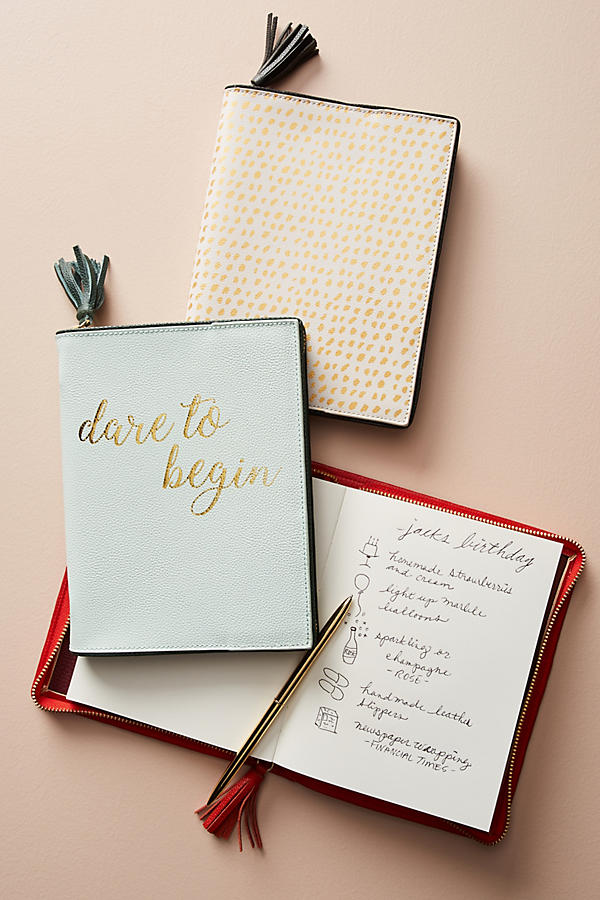 dare to
begin
jacks birthday
homemade strawberries
and cream
light up marble
balloons
sparkling or
champagne
-ROSÉ-
handmade leather
slippers
newspaper wrapping
-FINANCIAL TIMES-